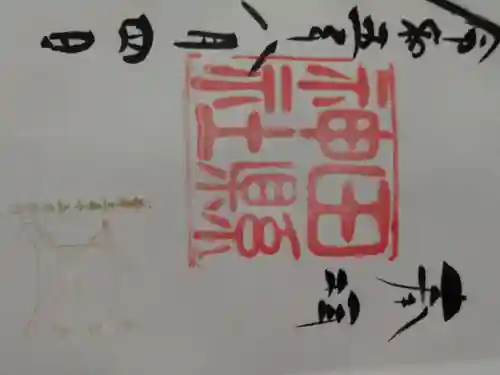 奉拝
田縣
神社
令和五年八月四日